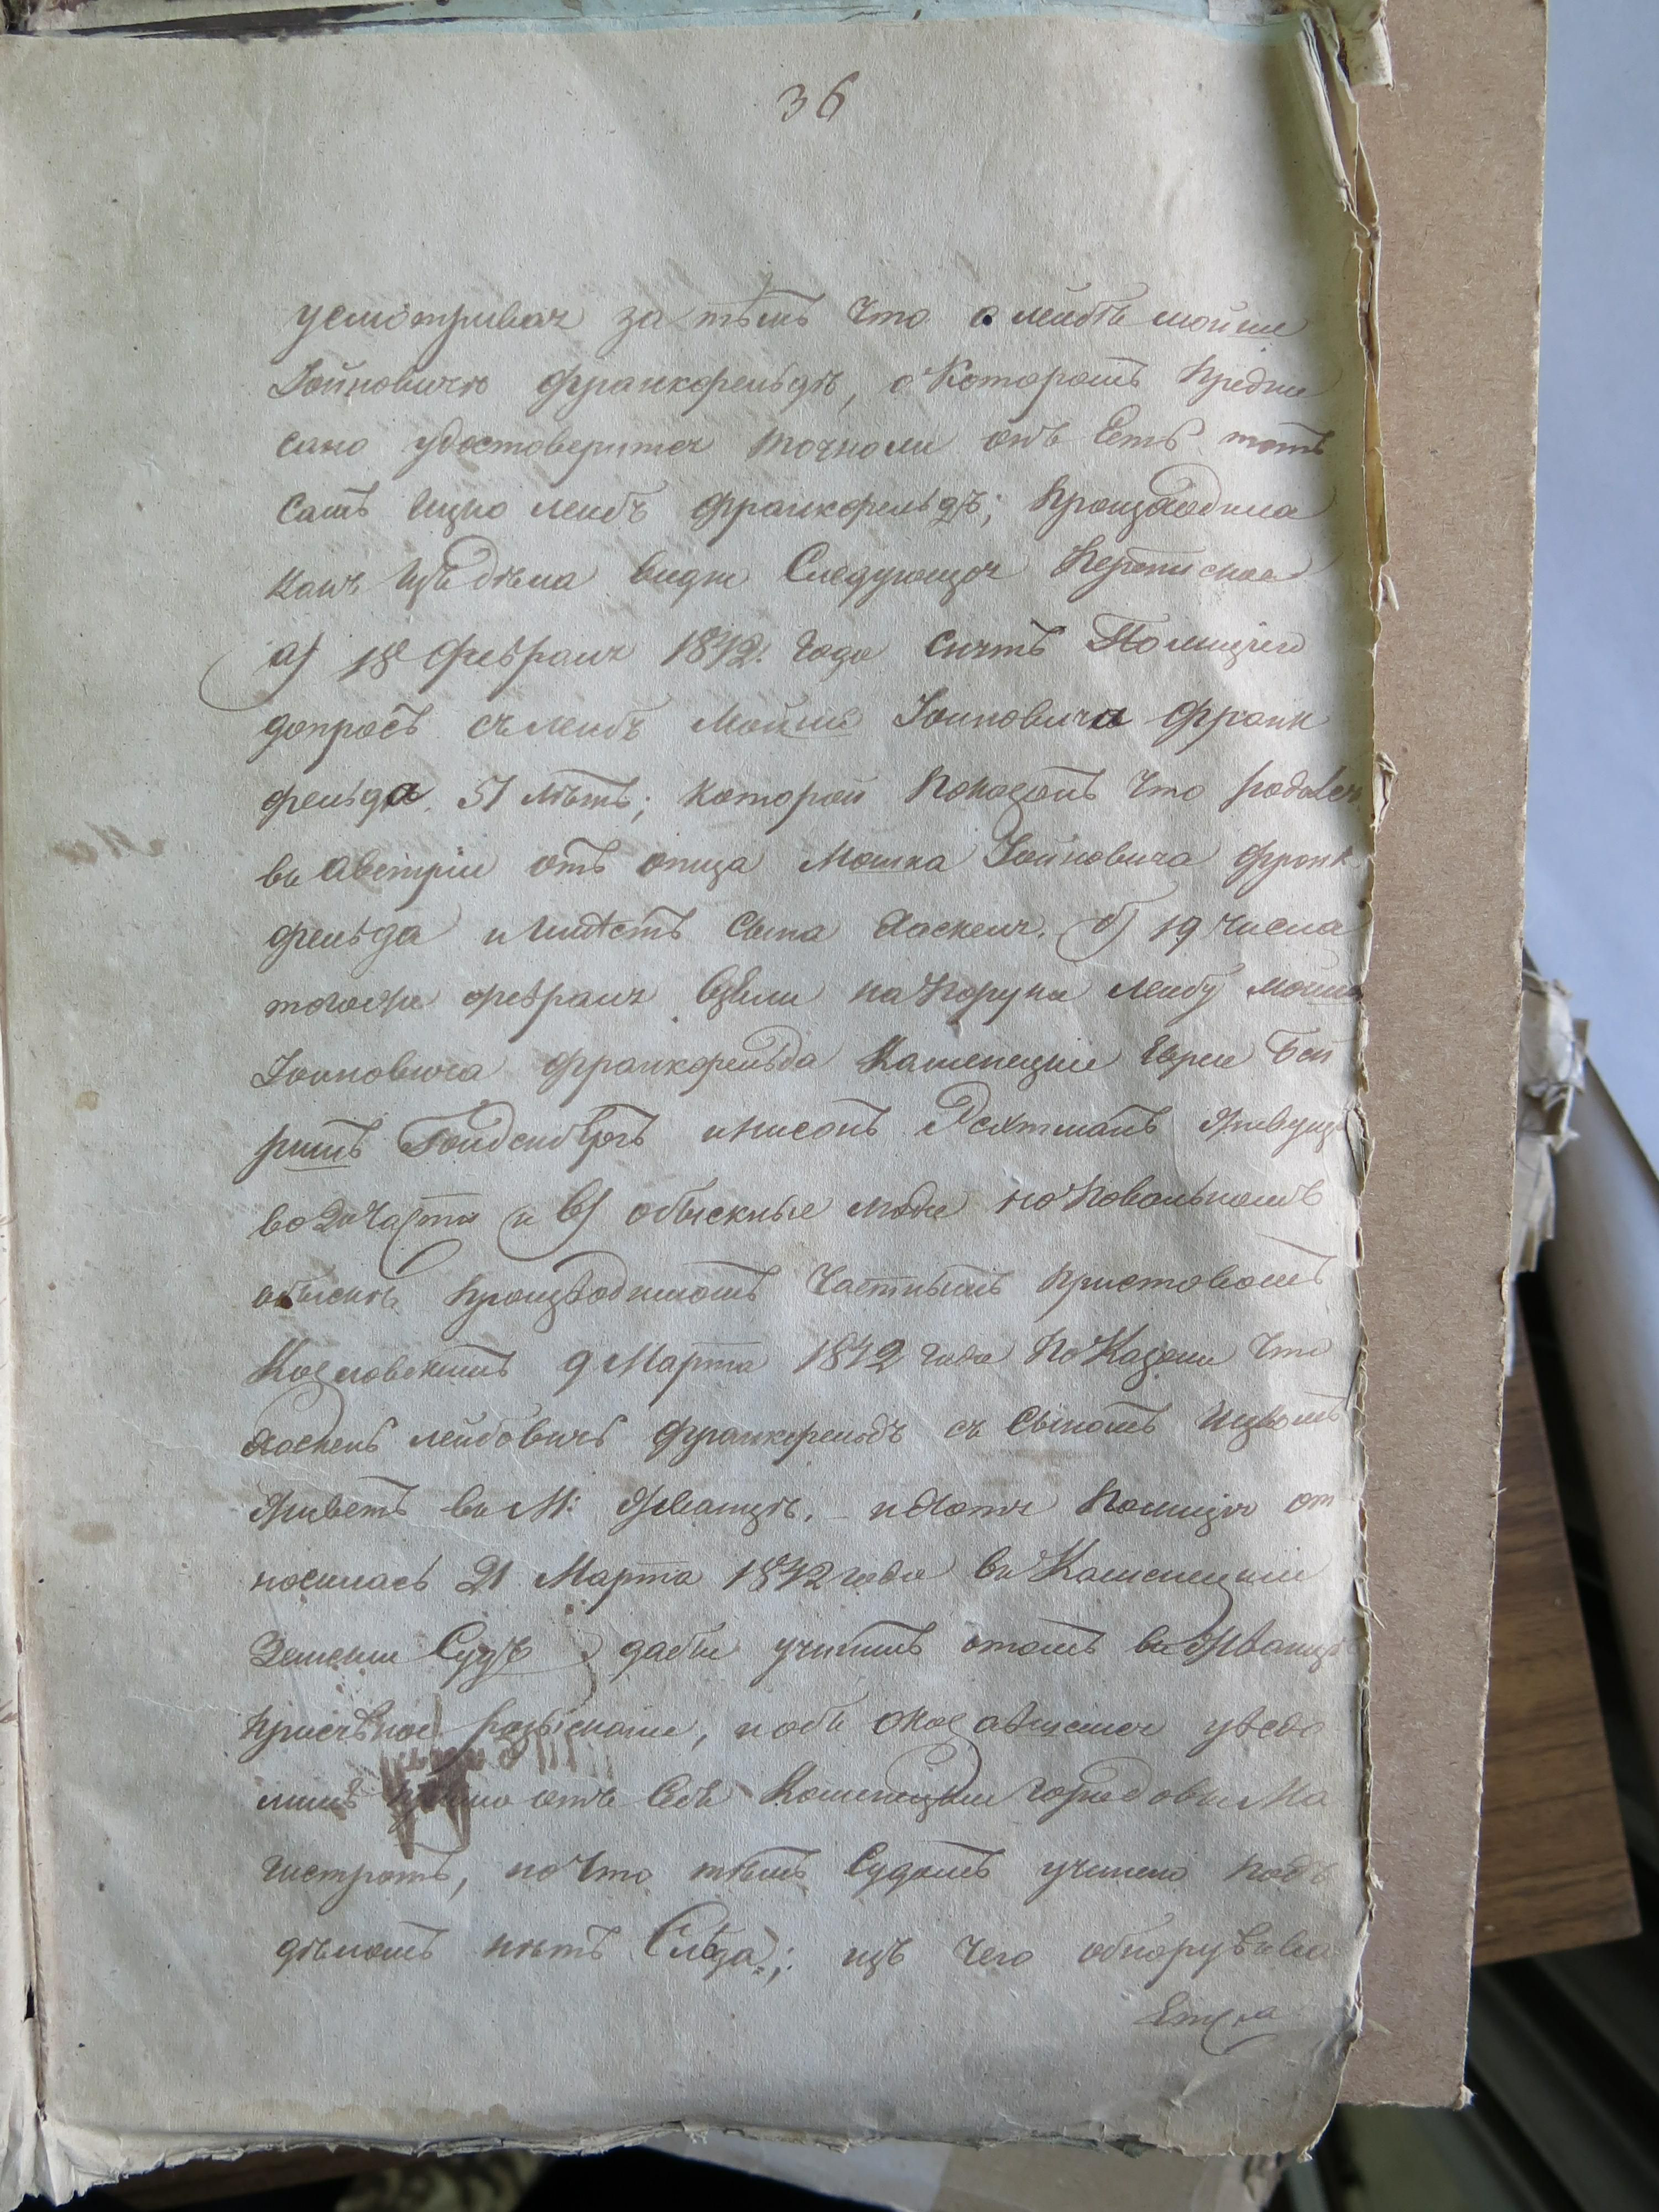 36
усмотривая за тѣмъ что о лейбѣ мойше
Іойновичѣ франкфельдѣ, о которомъ предпи
сано удостоверится точноли онъ Есть тотъ
самъ Ицко лейбъ франкфельдъ; произходила
какъ изъ дѣла видно Следующая переписка
а) 18 февраля 1842. года снятъ Полициею
допросъ съ лейбъ Мойше Іойновича франк
фельда 51 лѣтъ; которой показалъ что родился
въ Австріи отъ отца Мошка Іойновича франк
фельда и имѣетъ сына Хаскеля. б) 19 числа
тогоже февраля взяли на поруки лейбу мойше
Іойновича франкфельда Каменецкіе Евреи
Гольденбергъ и Нисонъ Рехтманъ живущіе
во 2й части и в) обыскные люди на повальномъ
обыскѣ производимомъ частнымъ приставомъ
Козловскимъ 9 Марта 1842 года показали что
Хаскель лейбовичъ франкфельдъ съ сыномъ Ицкомъ
живетъ въ М: Жванцѣ, и хотя полиція от
носилась 21 Марта 1842 года въ Каменецкій
Земскій Судъ дабы учинилъ отомъ въ Жванцѣ
розысканіе, и объ оказавшемся уведо
милъ прямо отъ Себя Каменецкій городовый Ма
гистратъ, но что тѣмъ Судомъ учинено подъ
дѣломъ нѣтъ Слѣда; изъ чего обнаружива
Ется